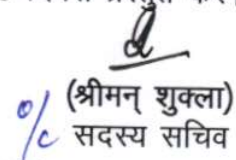 (श्रीमन् शुक्ला)
o/c सदस्य सचिव